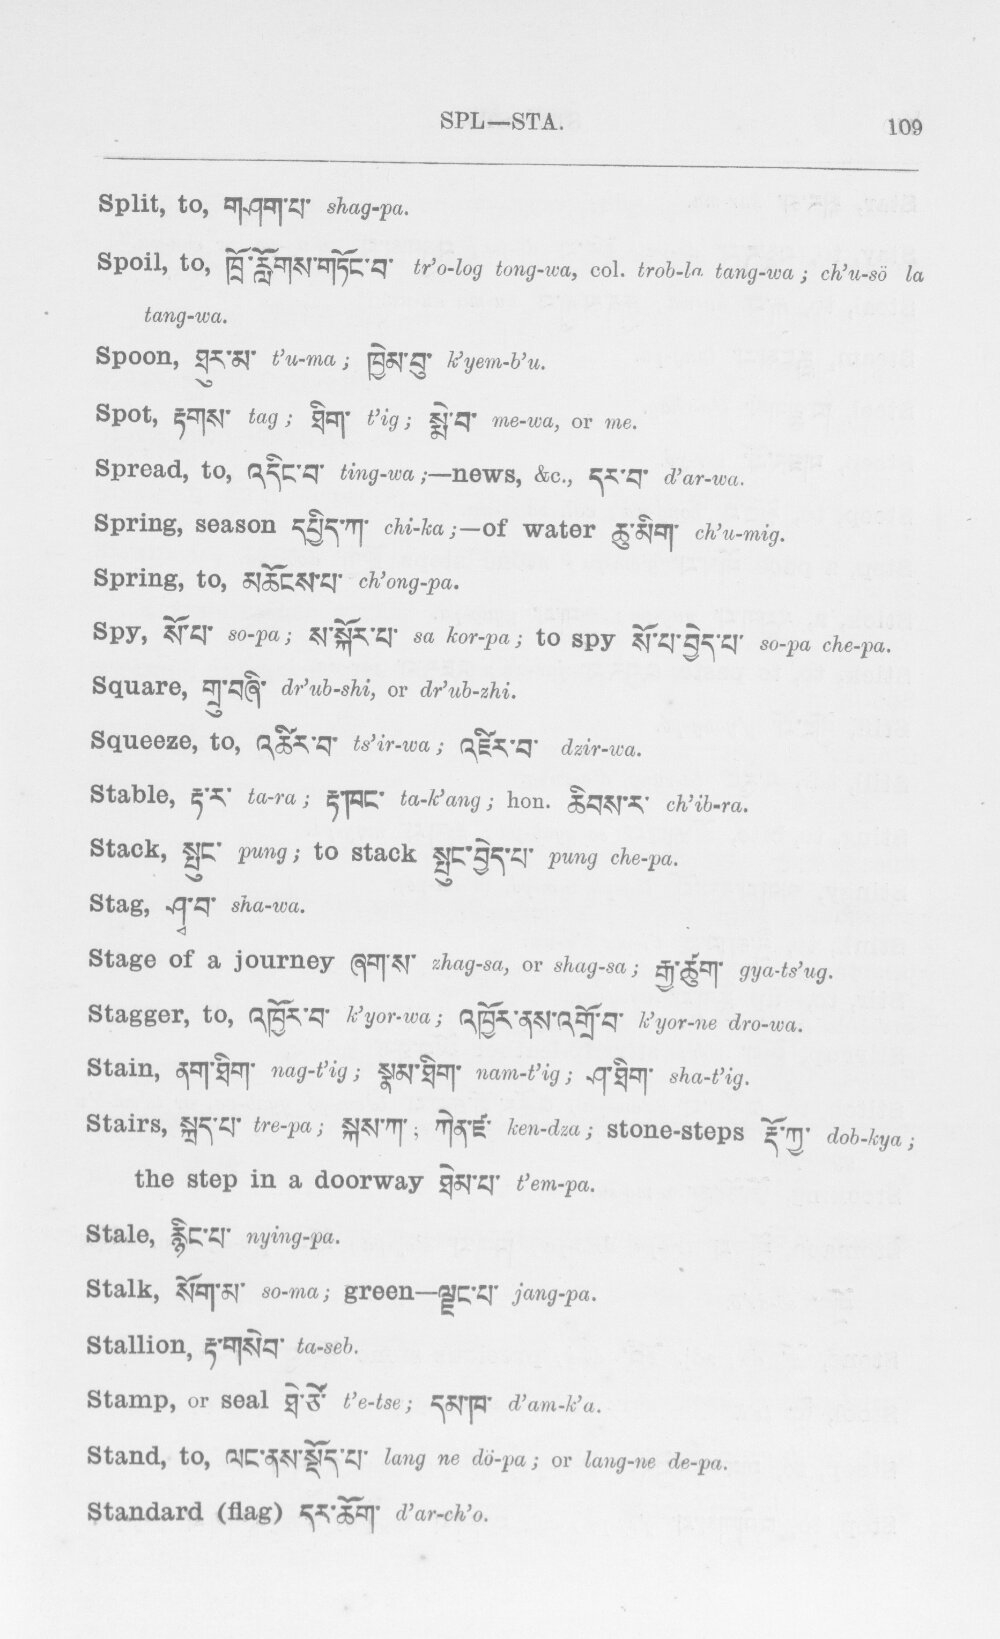 SPL—STA. 109
Split, to, གཤག་པ་ shag-pa.
Spoil, to, ཁྲོ་རློགས་གཏོང་བ་ tr’o-log tong-wa, col. trob-la tang-wa; ch’u-sö la
tang-wa.
Spoon, ཐུར་མ་ t’u-ma; ཁྱེམ་བུ་ k’yem-b’u.
Spot, རྟགས་ tag; ཐིག་ t’ig; སྨེ་བ་ me-wa, or me.
Spread, to, འདིང་བ་ ting-wa;—news, &c., དར་བ་ d’ar-wa.
Spring, season དཔྱིད་ཀ་ chi-ka;—of water ཆུ་མིག་ ch’u-mig.
Spring, to, མཆོངས་པ་ ch’ong-pa.
Spy, སོ་པ་ so-pa; ས་སྐོར་པ་ sa kor-pa; to spy སོ་པ་བྱེད་པ་ so-pa che-pa.
Square, གྲུ་བཞི་ dr’ub-shi, or dr’ub-zhi.
Squeeze, to, འཚིར་བ་ ts’ir-wa; འཛིར་བ་ dzir-wa.
Stable, རྟ་ར་ ta-ra; རྟ་ཁང་ ta-k’ang; hon. ཆིབས་ར་ ch’ib-ra.
Stack, སྤུང་ pung; to stack སྤུང་བྱེད་པ་ pung che-pa.
Stag, ཤྭ་བ་ sha-wa.
Stage of a journey ཞག་ས་ zhag-sa, or shag-sa; རྒྱ་ཚུག་ gya-ts’ug.
Stagger, to, འཁྱོར་བ་ k’yor-wa; འཁྱོར་ནས་འགྲོ་བ་ k’yor-ne dro-wa.
Stain, ནག་ཐིག་ nag-t’ig; སྣམ་ཐིག་ nam-t’ig; ཤ་ཐིག་ sha-t’ig.
Stairs, སྐྲད་པ་ tre-pa; སྐས་ཀ་; ཀེན་ཛ་ ken-dza; stone-steps རྡོ་ཀྱ་ dob-kya;
the step in a doorway ཐེམ་པ་ t’em-pa.
Stale, རྙིང་པ་ nying-pa.
Stalk, སོག་མ་ so-ma; green—ལྗང་པ་ jang-pa.
Stallion, རྟ་གསེབ་ ta-seb.
Stamp, or seal ཐེ་ཙེ་ t’e-tse; དམ་ཁ་ d’am-k’a.
Stand, to, ལང་ནས་སྡོད་པ་ lang ne dö-pa; or lang-ne de-pa.
Standard (flag) དར་ཆོག་ d’ar-ch’o.